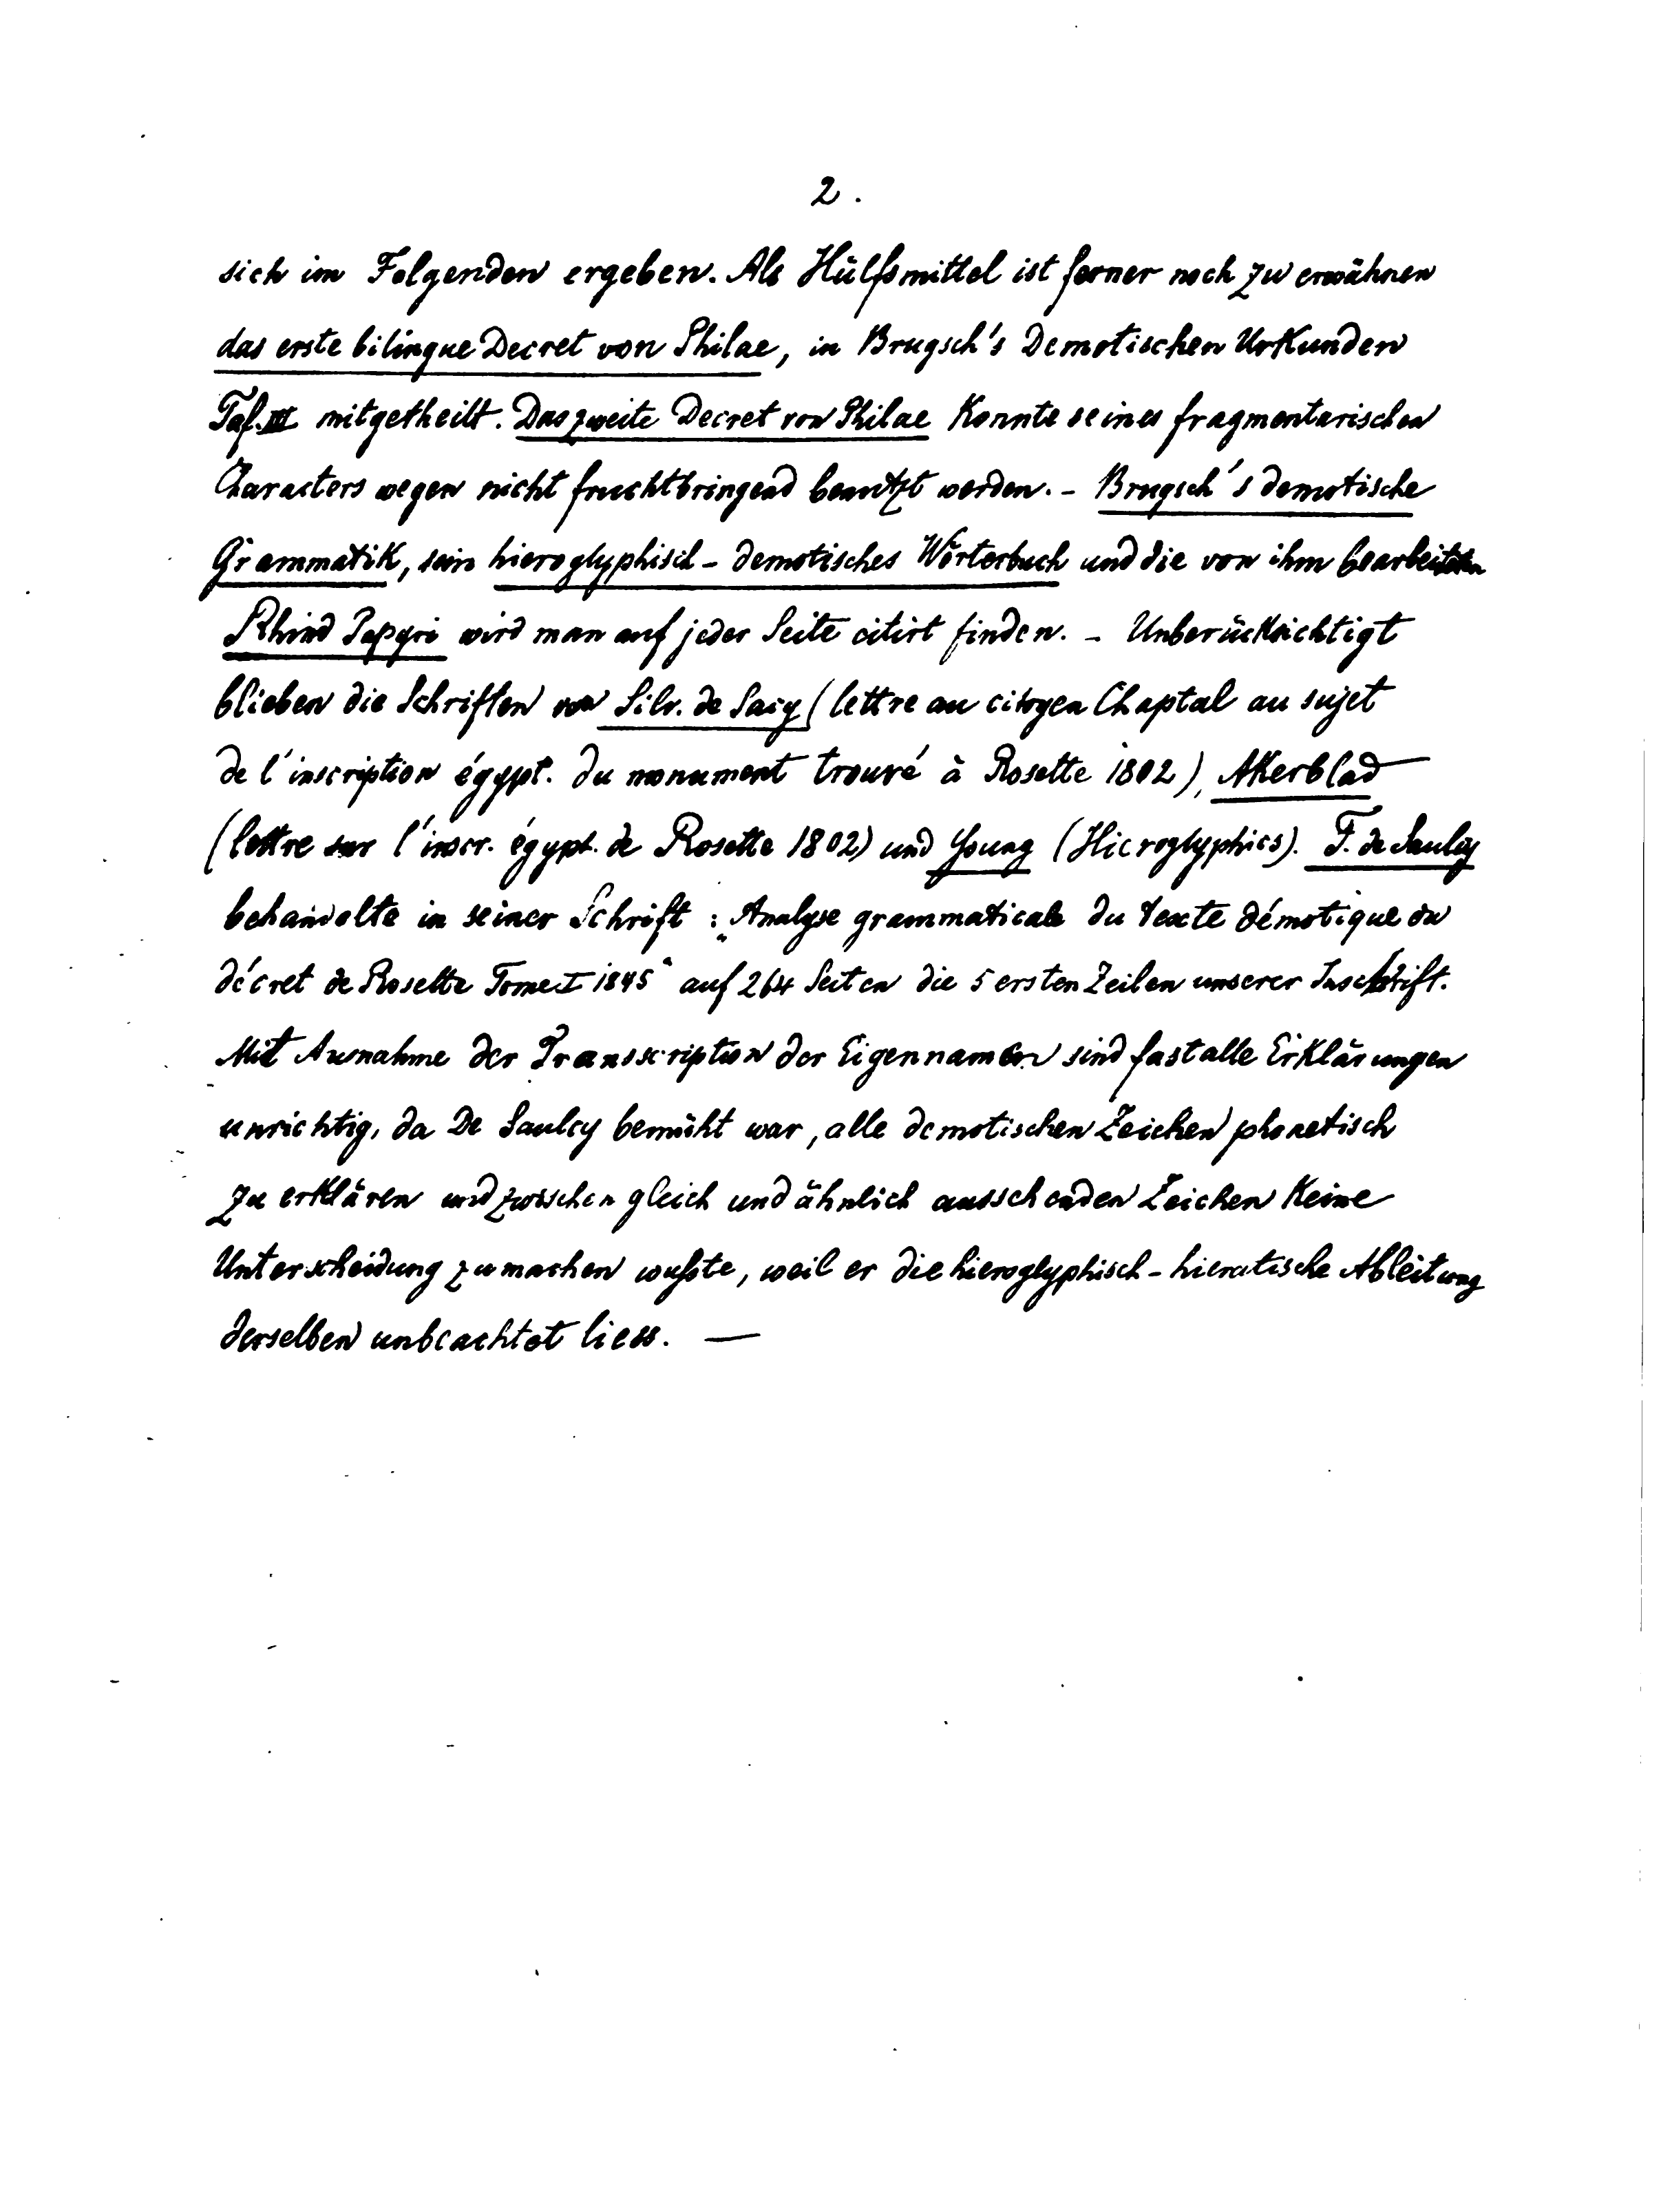 2.
sich im Folgenden ergeben. Als Hülfsmittel ist ferner noch zu erwähnen
das erste bilingue Decret von Philae, in Brugsch's Demotischen Urkunden
Taf. III mitgetheilt. Das zweite Decret von Philae konnte seines fragmentarischen
Characters wegen nicht fruchtbringend benutzt werden. - Brugsch's demotische
Grammatik, sein hieroglyphisch - demotisches Wörterbuch und die von ihm bearbeiteten
Rhind Papyri wird man auf jeder Seite citirt finden. - Unberücksichtigt
blieben die Schriften von Silv. de Sacy (lettre au citoyen Chaptal au sujet
de l'inscription égypt. du monument trouvé à Rosette 1802), Akerblad
(lettre sur l'inscr. égypt. de Rosette 1802) und Young (Hieroglyphics). F. de Saulcy
behandelte in seiner Schrift: „Analyse grammaticale du texte démotique du
décret de Rosette Tome I 1845“ auf 264 Seiten die 5 ersten Zeilen unserer Inschrift.
Mit Ausnahme der Transscription der Eigennamen sind fast alle Erklärungen
unrichtig, da De Saulcy bemüht war, alle demotischen Zeichen phonetisch
zu erklären und zwischen gleich und ähnlich aussehenden Zeichen keine
Unterscheidung zu machen wußte, weil er die hieroglyphisch - hieratische Ableitung
derselben unbeachtet liess. —